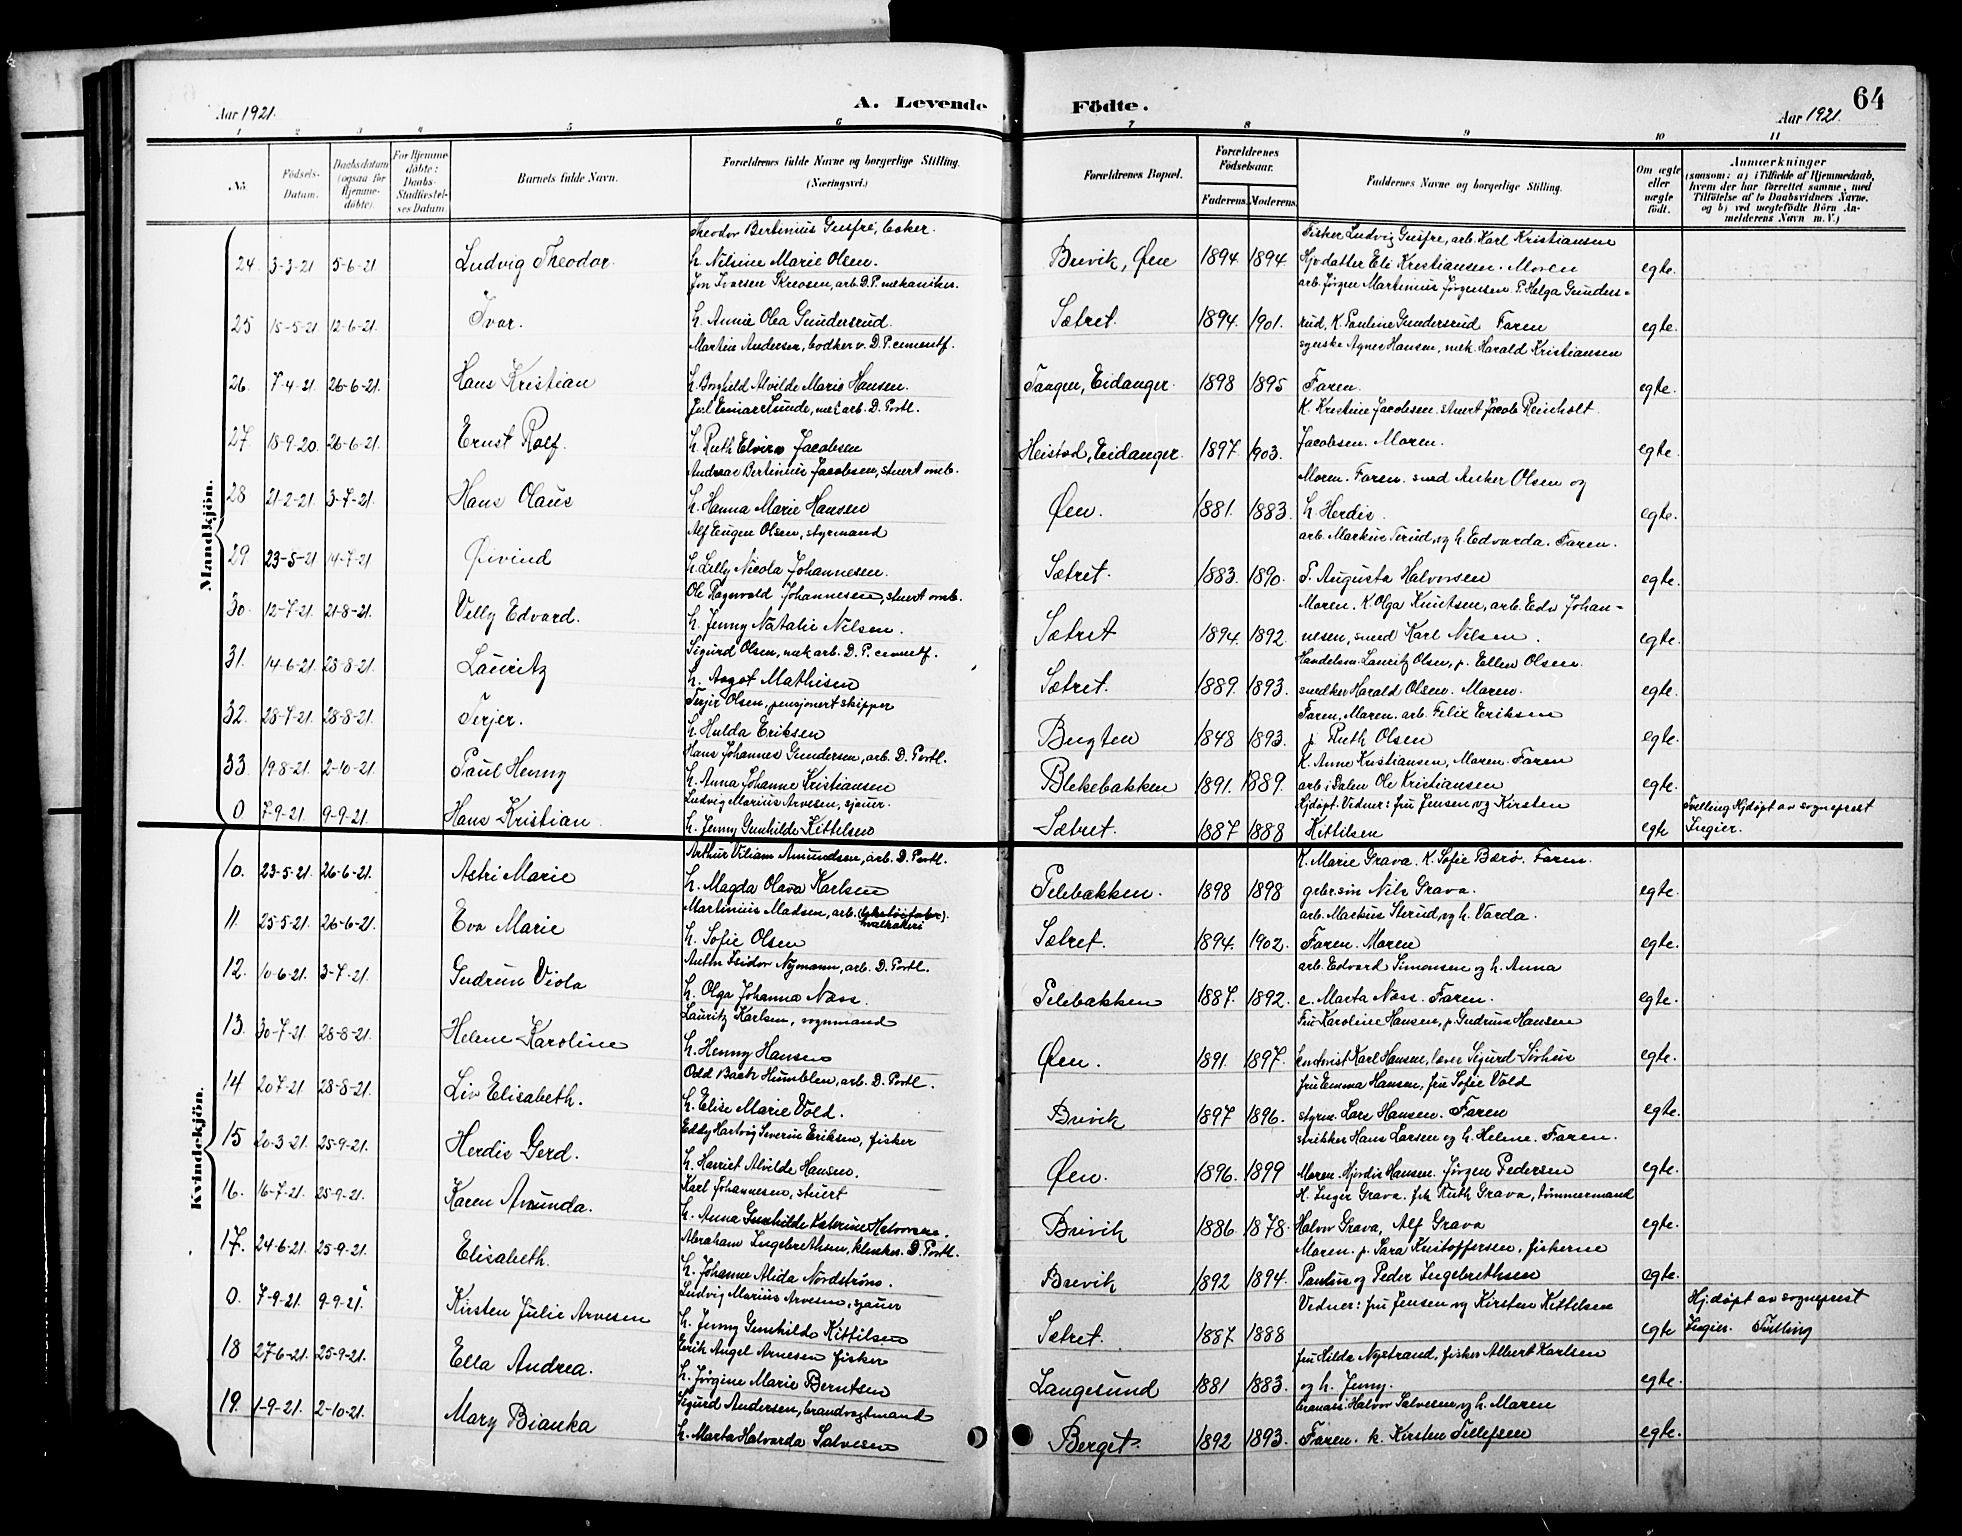 64
Aar 1921.
A. Levende
Födte.
Aar 1921
1 2 3 4 5 6 7 8 9 10 11
No.
Födsels-Datum.
Daabsdatum (ogsaa for Hjemme-döbte).
For Hjemme-döbte: Daabs-Stadfæstel-ses Datum.
Barnets fulde Navn.
Forældrenes fulde Navne og borgerlige Stilling. (Næringsvei.)
Forældrenes Bopæl.
Forældrenes Födselsaar.
Faderens. Moderens.
Faddernes Navne og borgerlige Stilling.
Om ægte eller uægte födt.
Anmærkninger
(saasom: a) i Tilfælde af Hjemmedaab, hvem der har forrettet samme, med Tilföielse af to Daabsvidners Navne, og b) ved uægtefödte Börn An-melderens Navn m. V.)
Mandkjön.
Theodor Bertinius Gusfre, bøker. Fisker Ludvig Gusfre, arb. Karl Kristiansen
24 3-3-21 5-6-21 Ludvig Theodor. h. Nilsine Marie Olsen. Brevik, Øen 1894 1894 Hjvdatter Eli Kristiansen. Moren egte.
arb. D. P. mekaniker. arb. Jørgen Martinius Jørgensen P. Helga Gunders-
25 15-5-21 12-6-21 Ivar. h. Annie Olea Gundersrud. Sætret. 1894. 1901. rud, K. Pauline Gundersrud Faren egte.
Martin Andersen, bødker v. D. P. cementf. syerske Agnes Hansen, mek. Harald Kristiansen
26. 7-4-21 26-6-21. Hans Kristian h. Borghild Alvilde Marie Hansen. Tangen, Eidanger. 1898 1895 Faren. egte.
Sunde, mek arb. D. Portl. K. Kristine Jacobsen. stuert Jacob Reinholt
27 18-9-20. 26-6-21. Ernst Rolf. h. Ruth Elvira Jacobsen Heistad, Eidanger. 1897. 1903. Jacobsen. Moren. egte.
Andreas Bertinius Jacobsen, stuert omb. Moren. Faren. smed Anker Olsen og
28 21-2-21. 3-7-21. Hans Olaus h. Hanna Marie Hansen Øen. 1881. 1883. h. Herdis. egte.
Alf Eugen Olsen, styrmand arb. Markus Terud, og h. Edvarda. Faren.
29 23-5-21 14-7-21 Øivind h. Lilly Nicola Johannesen. Sætret. 1883. 1890. P. Augusta Halvorsen egte.
Ole Ragnvald Johannesen, stuert omb. Moren. K. Olga Knutsen, arb. Edv Johan-
30. 12-7-21. 21-8-21. Villy Edvard. h. Jenny Natalie Nilsen. Sætret 1894. 1892. nesen, smed Karl Nilsen. egte.
Sigurd Olsen, mek arb. D. P. cementf. Handelsm. Lauritz Olsen, p. Ellen Olsen.
31. 14-6-21. 28-8-21. Lauritz h. Aagot Mathisen Sætret. 1889. 1893. snedker Harald Olsen. Moren. egte.
Terjer Olsen, pensjonert skipper Faren, Moren. arb. Felix Eriksen
32. 28-7-21. 28-8-21. Terjer. h. Hulda Eriksen Bugten 1848 1893. p. Ruth Olsen egte.
Hans Johannes Gundersen, arb. D. Portl. K. Anne Kristiansen, Moren. Faren
33 19-8-21. 2-10-21. Paul Henny h. Anna Johanne Kristiansen Blekebakken 1891. 1889. arb i Dalen Ole Kristiansen egte.
Ludvig Marius Arvesen, sjauer. Hjdøpt. Vidner: fru Jensen og Kirsten Tvelling Hjdøpt av sogneprest
0 7-9-21. 9-9-21. Hans Kristian. h. Jenny Gunhilde Kittilsen Sætret. 1887 1888 Kittilsen egte Ingier.
Kvindekjön.
Arthur Viliam Amundsen, arb. D. Portl. K. Marie Grava. K. Sofie Bærø. Faren.
10. 23-5-21. 26-6-21. Astri Marie h. Magda Olava Karlsen Pelebakken. 1898 1898 grbr.søn Nils Grava. egte.
Martinius Madsen, arb. hvalkokeri arb. Markus Sterud, og h. Varda.
11. 25-5-21. 26-6-21. Eva Marie h. Sofie Olsen Sætret. 1894. 1902. Faren. Moren egte.
Isidor Nymann, arb. D. Portl. arb. Edvard Simonsen og h. Anna
12. 10-6-21. 3-7-21. Gudrun Viola h. Olga Johanna Næss. Pelebakken 1887. 1892. e. Marta Næss. Faren. egte.
Lauritz Karlsen, vognmand Fru Karoline Hansen, p. Gudrun Hansen
13. 30-7-21. 28-8-21. Helene Karoline h. Henny Hansen Øen. 1891. 1897. Karl Hansen, lærer Sigurd Sirhus egte.
Odd Back Humblen, arb. D. Portl. fru Emma Hansen, fru Sofie Vold
14 20-7-21 28-8-21. Liv Elisabeth. h. Elise Marie Vold. Brevik 1897 1896. styrm. Lars Hansen. Faren egte.
Eddy Hartvig Severin Eriksen, fisker Hans Larsen og h. Helene. Faren.
15 20-3-21. 25-9-21. Herdis Gerd. h. Harriet Alvilde Hansen. Øen. 1896. 1899 Moren. Hjørdis Hansen. Jørgen Pedersen egte.
Karl Johannesen, stuert H. Inger Grava. frk Ruth Grava, tømmermand
16. 16-7-21. 25-9-21. Karen Amunda. h. Anna Gunhilde Katerine Halvorsen. Brevik 1886 1878. Halvor Grava, Alf Grava egte.
Abraham Ingebrethsen, D. Portl. Moren. p. Sara Kristoffersen, fiskerne
17. 24-6-21. 25-9-21. Elisabeth. h. Johanne Alida Nordstrøm. Brevik 1892 1894. Paulus og Peder Ingebrethsen egte.
Ludvig Marius Arvesen, sjauer Vidner: fru Jensen og Kirsten Kittelsen Hj.døpt av sogneprest
0. 7-9-21. 9-9-21. Kirsten Julie Arvesen h. Jenny Gunhilde Kittilsen Sætret. 1887 1888 egte Ingier. Tvilling
Erik Angel Arnesen fisker fru Hilda Nystrand, fisker Albert Karlsen
18 27-6-21. 25-9-21. Ella Andrea. h. Jørgine Marie Berntsen Langesund 1881 1883. og h. Jenny. egte.
Sigurd Andersen, brandvagtmand Halvor Salvesen og h. Maren
19. 1-9-21. 2-10-21. Mary Bianka h. Marta Halvarda Salvesen Berget. 1892 1893. Faren. k. Kirsten Tellefsen egte.